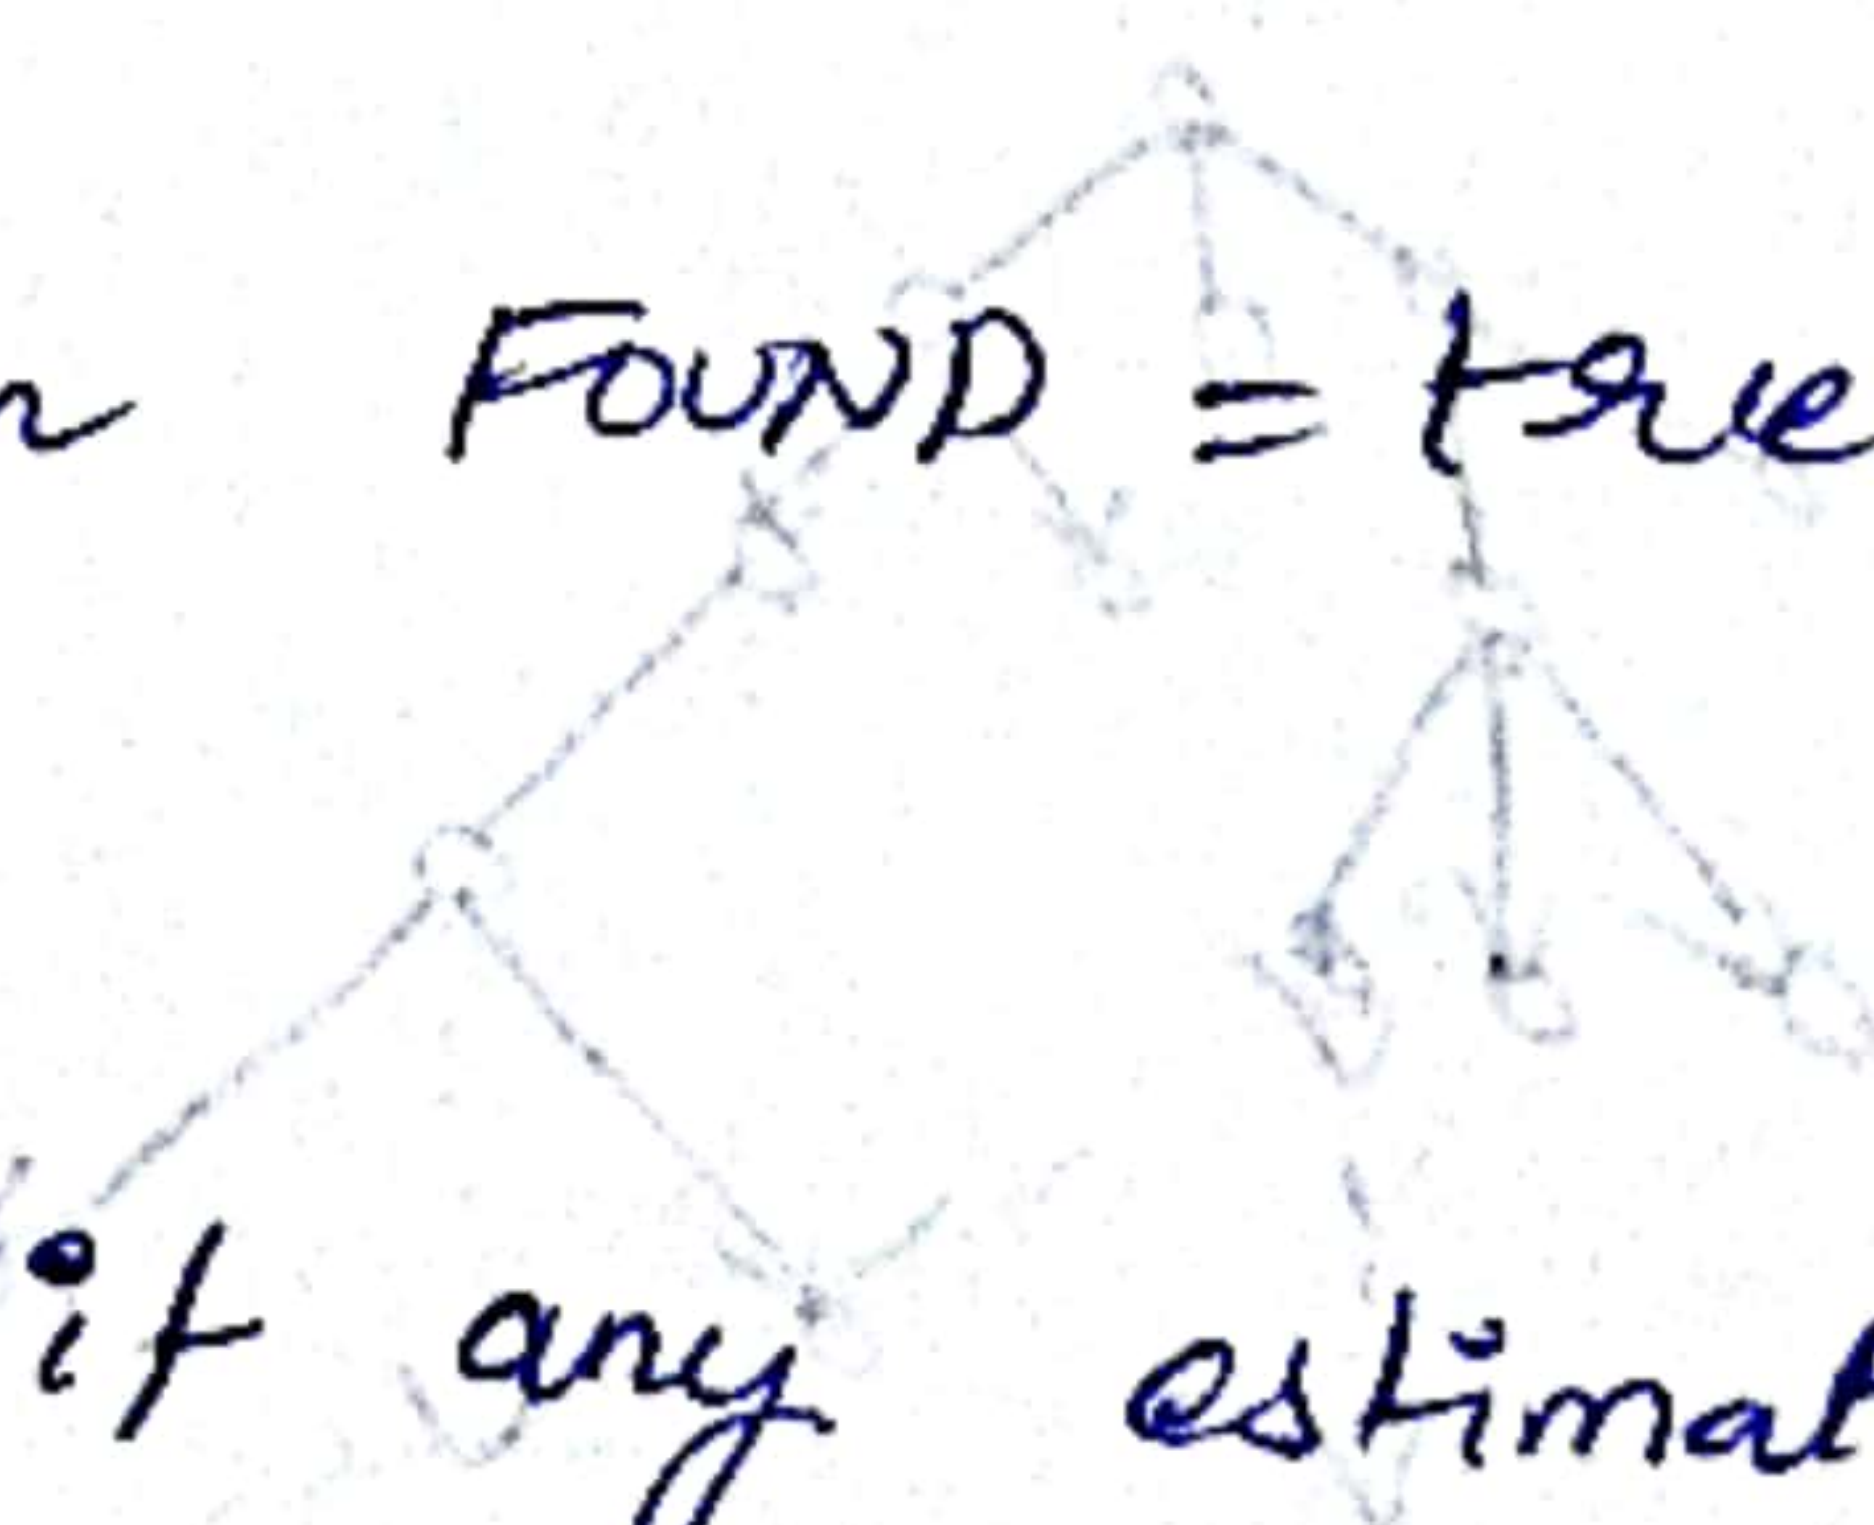 FOUND = true
if any estimat